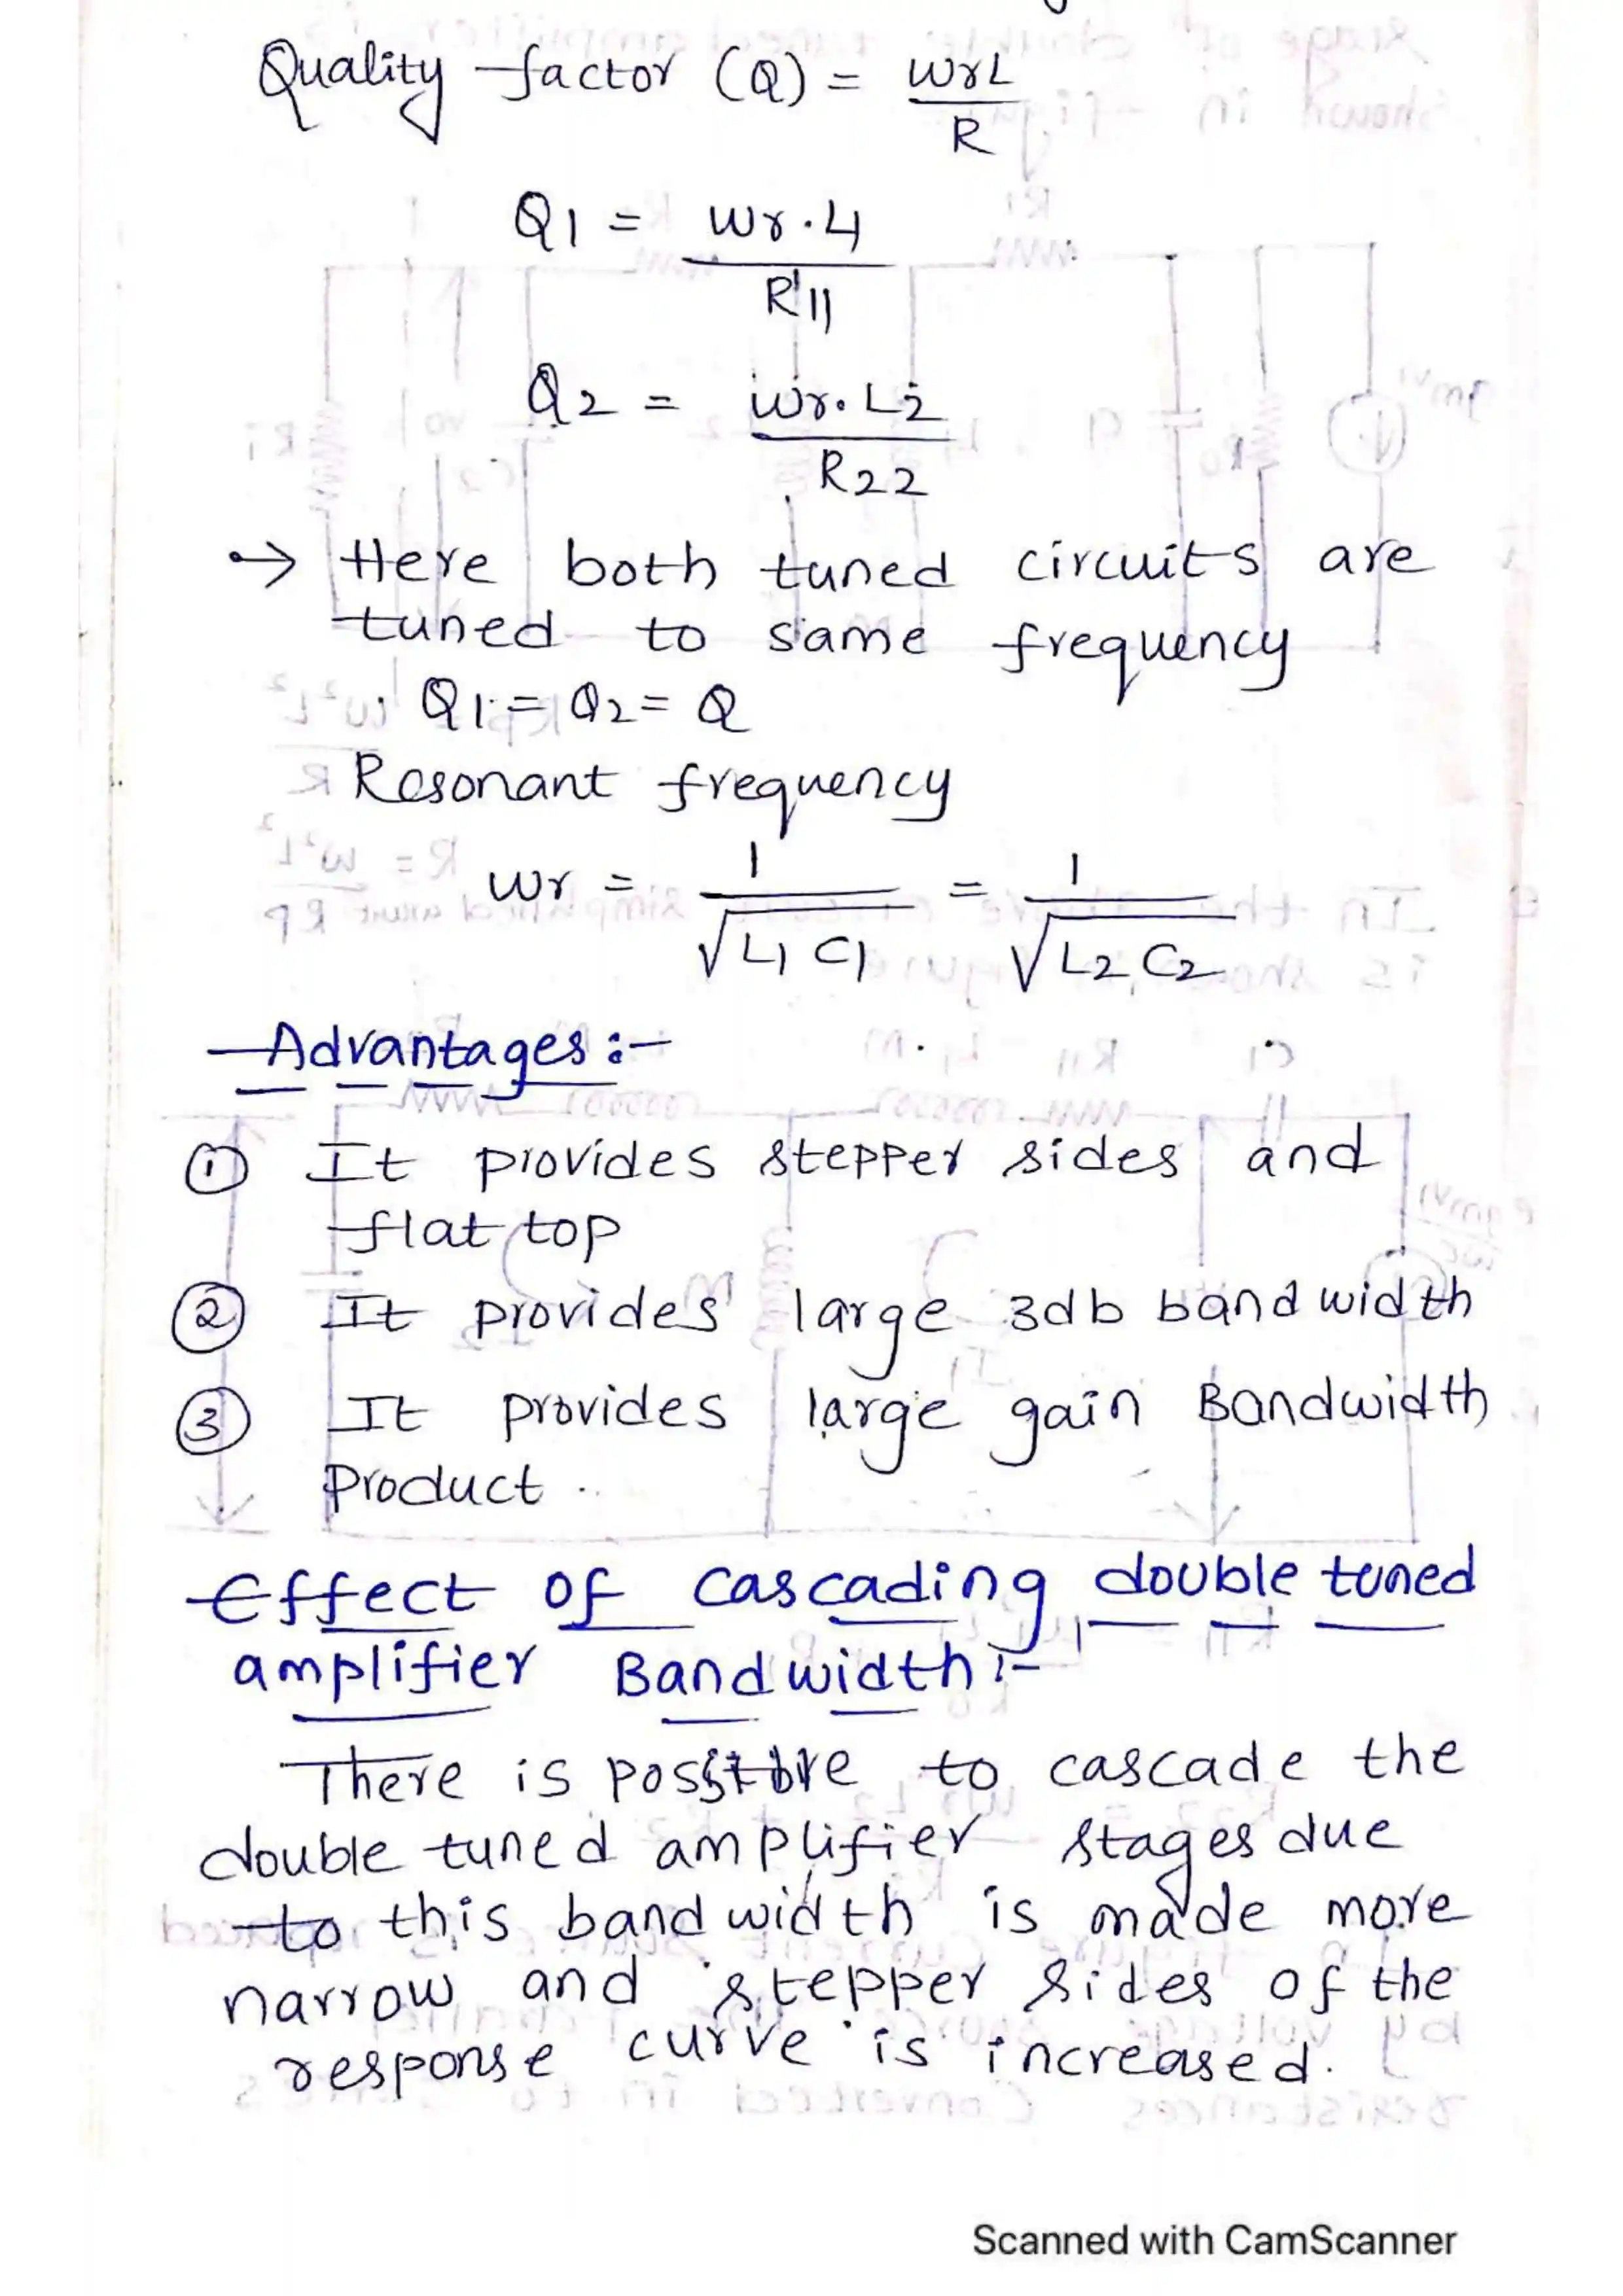 Quality factor (Q) = ωrL / R
Q1 = ωr.L1 / R11
Q2 = ωr.L2 / R22
→ Here both tuned circuits are
tuned to same frequency
Q1 = Q2 = Q
Resonant frequency
ωr = 1 / √L1 C1 = 1 / √L2 C2
Advantages :-
① It provides stepper sides and
flat top
② It provides large 3db bandwidth
③ It provides large gain Bandwidth
Product.
Effect of cascading double tuned
amplifier Bandwidth :-
There is possible to cascade the
double tuned amplifier stages due
to this bandwidth is made more
narrow and stepper sides of the
response curve is increased.
Scanned with CamScanner